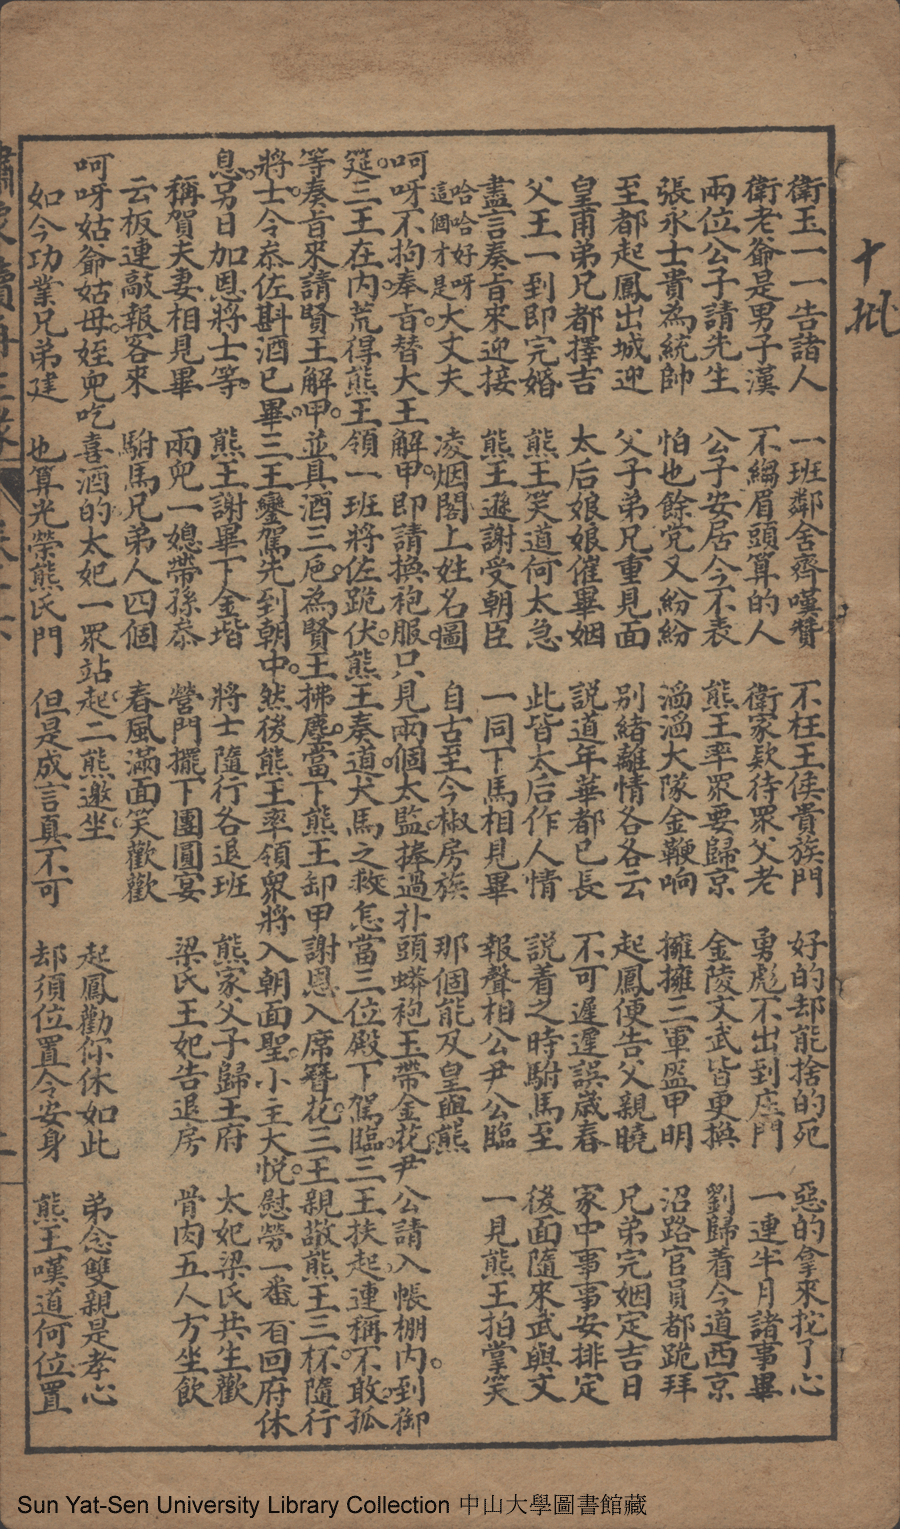 十批
衛玉一一告諸人　一班鄰舍齊嘆贊　不枉王侯貴族門　好的却能捨的死　惡的拿來挖了心
衛老爺是男子漢　不縐眉頭算的人　衛家欵待眾父老　勇彪不出到庄門　一連半月諸事畢
兩位公子請先生　公子安居今不表　熊王率眾要歸京　金陵文武皆更換　劉歸着今道西京
張永士貴為統帥　怕也餘党又紛紛　滔滔大隊金鞭响　擁擁三軍盔甲明　沿路官員都跪拜
至都起鳳出城迎　父子弟兄重見面　別緒離情各各云　起鳳便告父親曉　兄弟完姻定吉日
皇甫弟兄都擇吉　太后娘娘催畢姻　説道年華都已長　不可遲遲誤歲春　家中事事安排定
父王一到即完婚　熊王笑道何太急　此皆太后作人情　説着之時駙馬至　後面隨來武與文
盡言奏旨來迎接　熊王遜謝受朝臣　一同下馬相見畢　報聲相公尹公臨　一見熊王拍掌笑
哈哈好呀這個才是大丈夫　凌烟閣上姓名圖　自古至今椒房族　那個能及皇與熊
呵呀不拘奉旨替大王解甲即請換袍服只見兩個太監捧過扑頭蟒袍玉帶金花尹公請入帳棚内到御
筵三王在内荒得熊王領一班將佐跪伏熊王奏道犬馬之救怎當三位殿下駕臨三王扶起連稱不敢孤
等奏旨來請賢王解甲並具酒三巵為賢王拂塵當下熊王卸甲謝恩入席簪花三王親敬熊王三杯隨行
將士令叅佐斟酒已畢三王鑾駕先到朝中然後熊王率領眾將入朝面聖小主大悅慰勞一番百回府休
息另日加恩將士等　熊王謝畢下金堦　將士隨行各退班　熊家父子歸王府　太妃梁氏共生歡
稱賀夫妻相見畢　兩兒一媳帶孫叅　營門擺下團圓宴　梁氏王妃告退房　骨肉五人方坐飲
云板連敲報客來　駙馬兄弟人四個　春風滿面笑歡歡
呵呀姑爺姑母姪兒吃喜酒的太妃一眾站起二熊邀坐　起鳳勸你休如此　弟念雙親是孝心
如今功業兄弟建　也算光榮熊氏門　但是成言真不可　却須位置令安身　熊王嘆道何位置